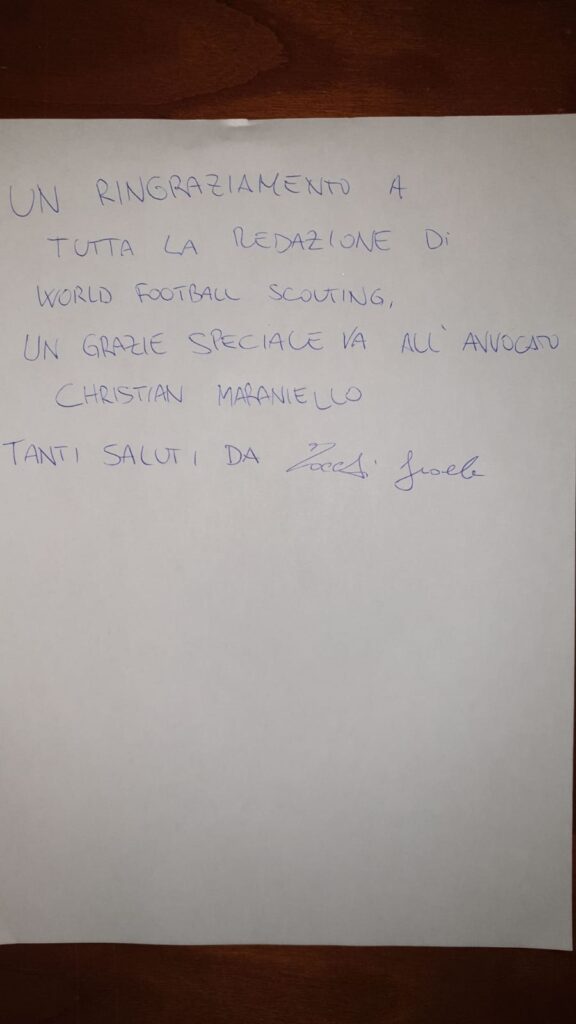 UN RINGRAZIAMENTO A
TUTTA LA REDAZIONE Di
WORLD FOOTBALL SCOUTING,
UN GRAZIE SPECIALE VA ALL' AVVOCATO
CHRISTIAN MARANIELLO
TANTI SALUTI DA